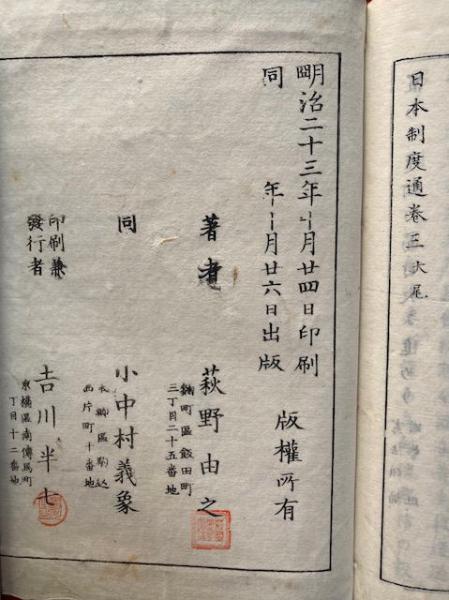 日本制度通卷三大尾
明治二十三年十月廿四日印刷
同年十月廿六日出版
版權所有
著者
萩野由之
麹町區飯田町
三丁目二十五番地
同
小中村義象
本郷區駒込
西片町十番地
印刷兼
發行者
吉川半七
京橋區南傳馬町
丁目十二番地